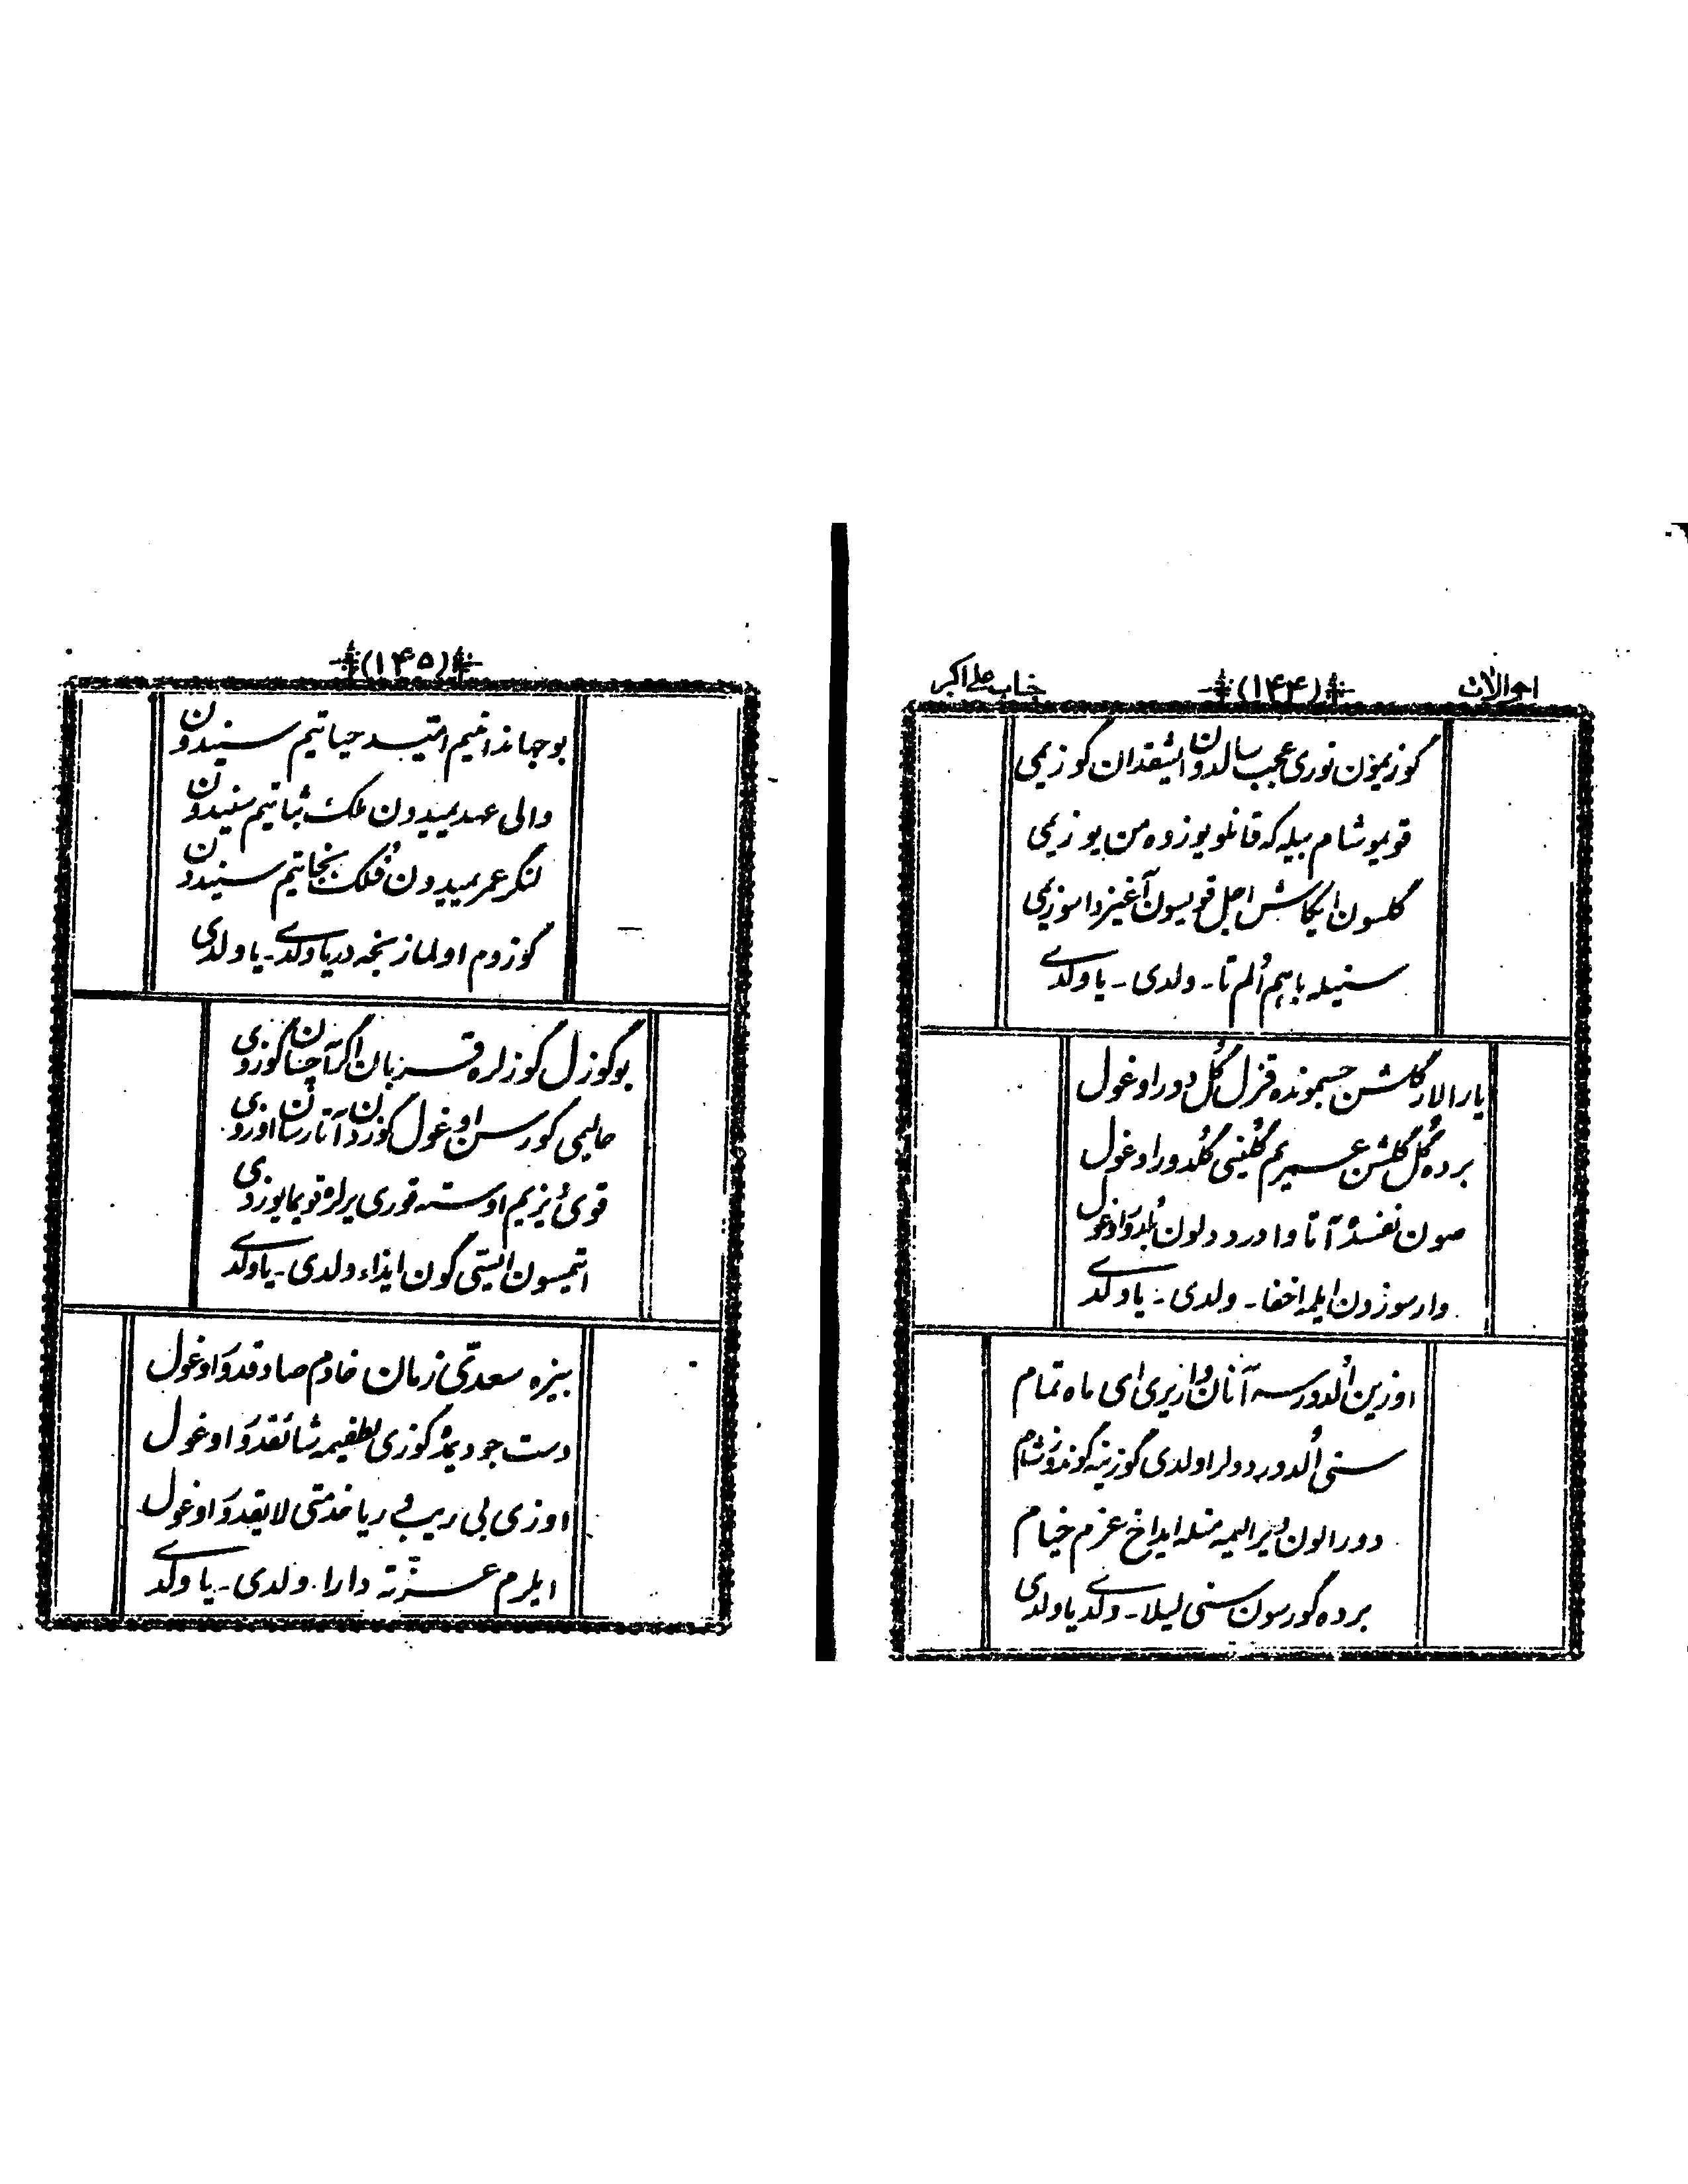 احوالات (۱۴۴) جناب علی اکبر
کوزیموُن نوری عجب سالدون ایشقدان کوزیمی
قویموشام بیله که قانلو یوزوه من یوزیمی
گلسون ایکاش اجل قویسون آغیزدا سوزیمی
سنیله باهم اُلم تا - ولدی - یا ولدی
یارالار گلشن جسمونده قزل گُل دور اوغول
برده گُل گلشن عمریم گلینی گُلدور اوغول
صون نفسدُه آتا وا درد دلون بُلدور اوغول
وار سوزون ایلمه اخفا - ولدی - یا ولدی
اوزین اُلدورسه آنان وار یری ای ماه تمام
سنی اُلدوردولر اولدی گوزینه گوندوز شام
دور الون ویر الیمه منله ایداخ عزم خیام
برده گورسون سنی لیلا - ولدی یا ولدی
(۱۴۵)
بوجهاندا نیم امّید حیاتیم سنیدون
والی عهدیمیدون ملک ثباتیم سنیدون
لنگر عمریمیدون فُلک نجاتیم سنیدون
گوزوم اولماز نجه دریا ولدی - یا ولدی
بو گوزل گوزلره قربان اگر آچسان گوزوی
حالیمی گورسن اوغول گوردون آتان رسا اوزوی
قوی دُیزیم اوسته قوری یرلره قویما یوزوی
ایتمیسون ایستی گون ایذاء ولدی - یا ولدی
بیزه سعدتّی زمان خادم صادقدوَ اوغول
دست جودیمدُه گوزی لطفیمه شائقدوَ اوغول
اوزی بی ریب و ریا خدمتی لایقدوَ اوغول
ایلرم عزّته دارا - ولدی - یا ولدی